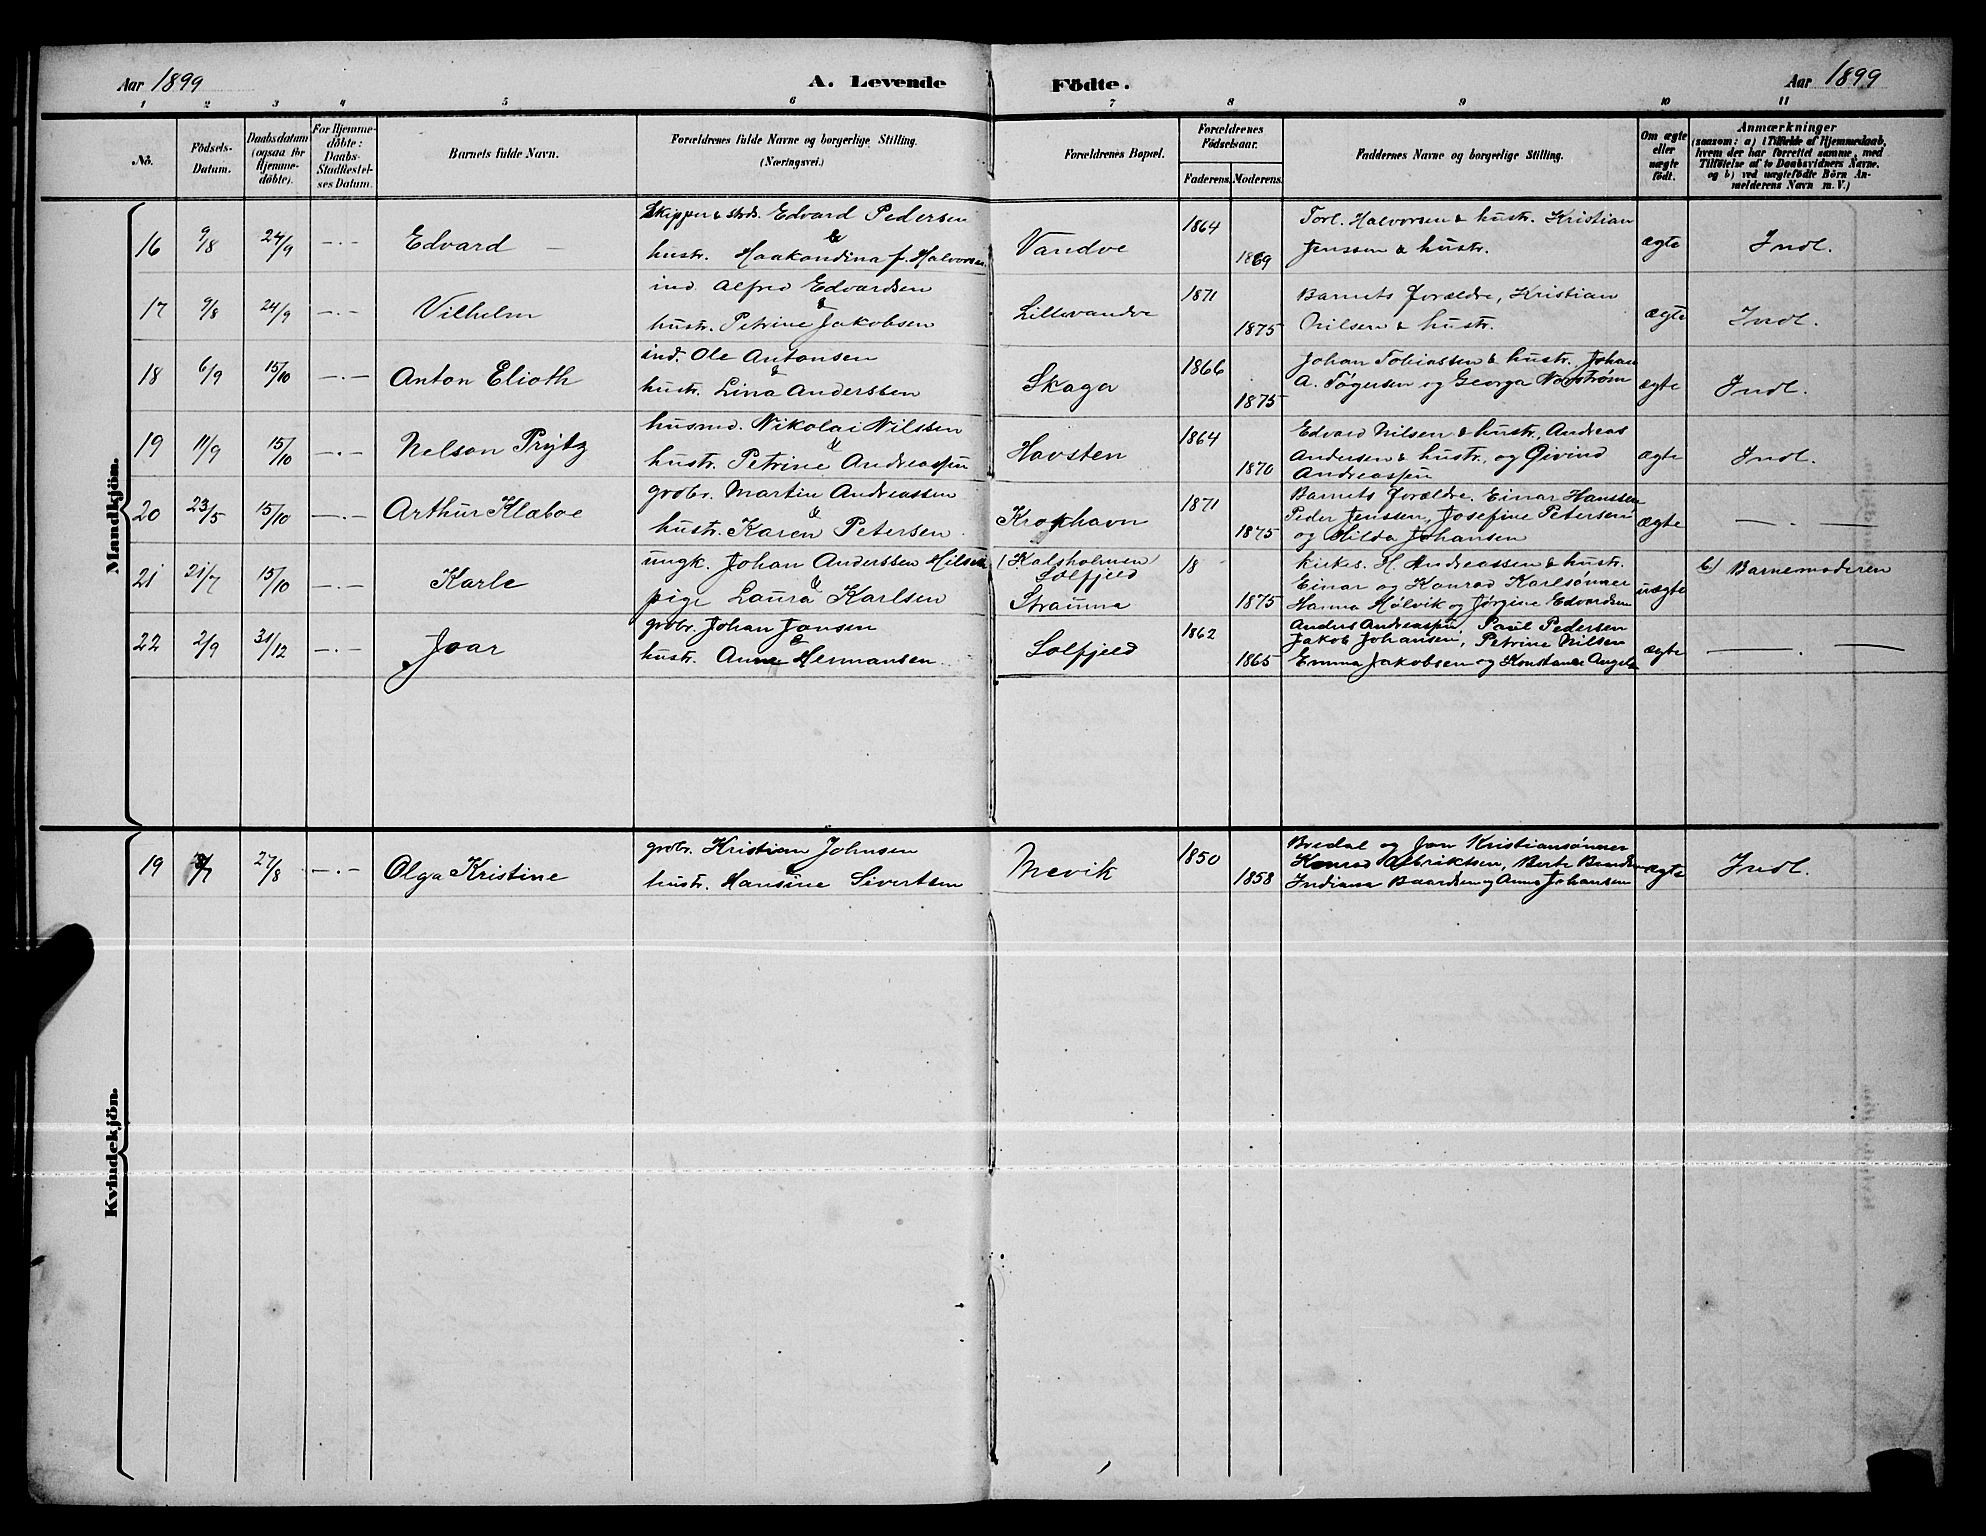 Aar 1899
A. Levende Födte.
Aar 1899
1 2 3 4 5 6 7 8 9 10 11
No.
Födsels-
Datum.
Daabsdatum
(ogsaa for
Hjemme-
döbte).
For Hjemme-
döbte:
Daabs-
Stadfæstel-
ses Datum.
Barnets fulde Navn.
Forældrenes fulde Navne og borgerlige Stilling.
(Næringsvei.)
Forældrenes Bopæl.
Forældrenes
Födselsaar.
Faderens. Moderens.
Faddernes Navne og borgerlige Stilling.
Om ægte
eller
uægte
födt.
Anmærkninger
(saasom: a) i Tilfælde af Hjemmedaab,
hvem der har forrettet samme, med
Tilföielse af to Daabsvidners Navne,
og b) ved uægtefödte Börn An-
melderens Navn m. V.)
Mandkjön.
16 9/8 24/9 —·— Edvard — Skipper & strds. Edvard Pedersen
& hustr. Haakondina f. Halvorsen
Vandve 1864 1869 Torl. Halvorsen & hustr. Kristian
Jenssen & hustr. ægte Indl.
17 9/8 24/9 —·— Vilhelm ind. Alfred Edvardsen
& hustr. Petrine Jakobsen
Lillevandve 1871 1875 Barnets forældre, Kristian
Nilsen & hustr. ægte Indl.
18 6/9 15/10 —·— Anton Elioth ind. Ole Antonsen
& hustr. Lina Anderssen
Skaga 1866 1875 Johan Tobiassen & hustr. Johan
A. Tøgersen og Georga Norstrøm ægte Indl.
19 11/9 15/10 —·— Nelson Prytz husmd. Nikolai Nilssen
& hustr. Petrine Andreassen
Havsten 1864 1870 Edvard Nilsen & hustr., Andreas
Andersen & hustr., og Øivind
Andreassen ægte Indl.
20 23/5 15/10 —·— Arthur Klæboe grdbr. Martin Andreassen
& hustr. Karen Petersen
Krophavn 1871 1875 Barnets forældre. Einar Hanssen
Peder Jenssen, Josefine Petersen
og Hilda Johansen ægte — · —
21 21/7 15/10 —·— Karle ungk. Johan Anderssen
& pige Laura Karlsen
(Kalsholmen)
Solfjeld
Strauma 18 1875 kirkes. H. Andreassen & hustr.
Einar og Konrad Karlsønner
Hanna Hølvik og Jørgine Edvardsen uægte b) Barnemoderen
22 2/9 31/12 —·— Joar grdbr. Johan Jansen
& hustr. Anne Hermansen
Solfjeld 1862 1865 Anders Andreassen, Paul Pedersen
Jakob Johansen, Petrine Nilsen
Emma Jakobsen og Konstanse Angels ægte — · —
Kvindekjön.
19 /7 27/8 —·— Olga Kristine grdbr. Kristian Johnsen
& hustr. Hansine Sivertsen
Mevik 1850 1858 Bredal og Jon Kristiansønner
Konrad Albriktsen, Berte
Indiana Baardsen og Anna Johansen ægte Indl.